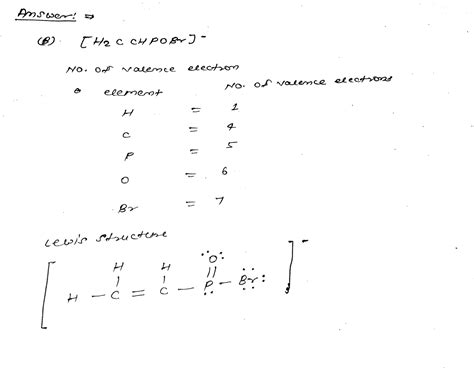 Answer: ⇒
(B) [H2C CHPOBr]-
No. of valence electron
element No. of valence electrons
H = 1
C = 4
P = 5
O = 6
Br = 7
Lewis structure
H H :O:
H - C = C - P - Br: ]-